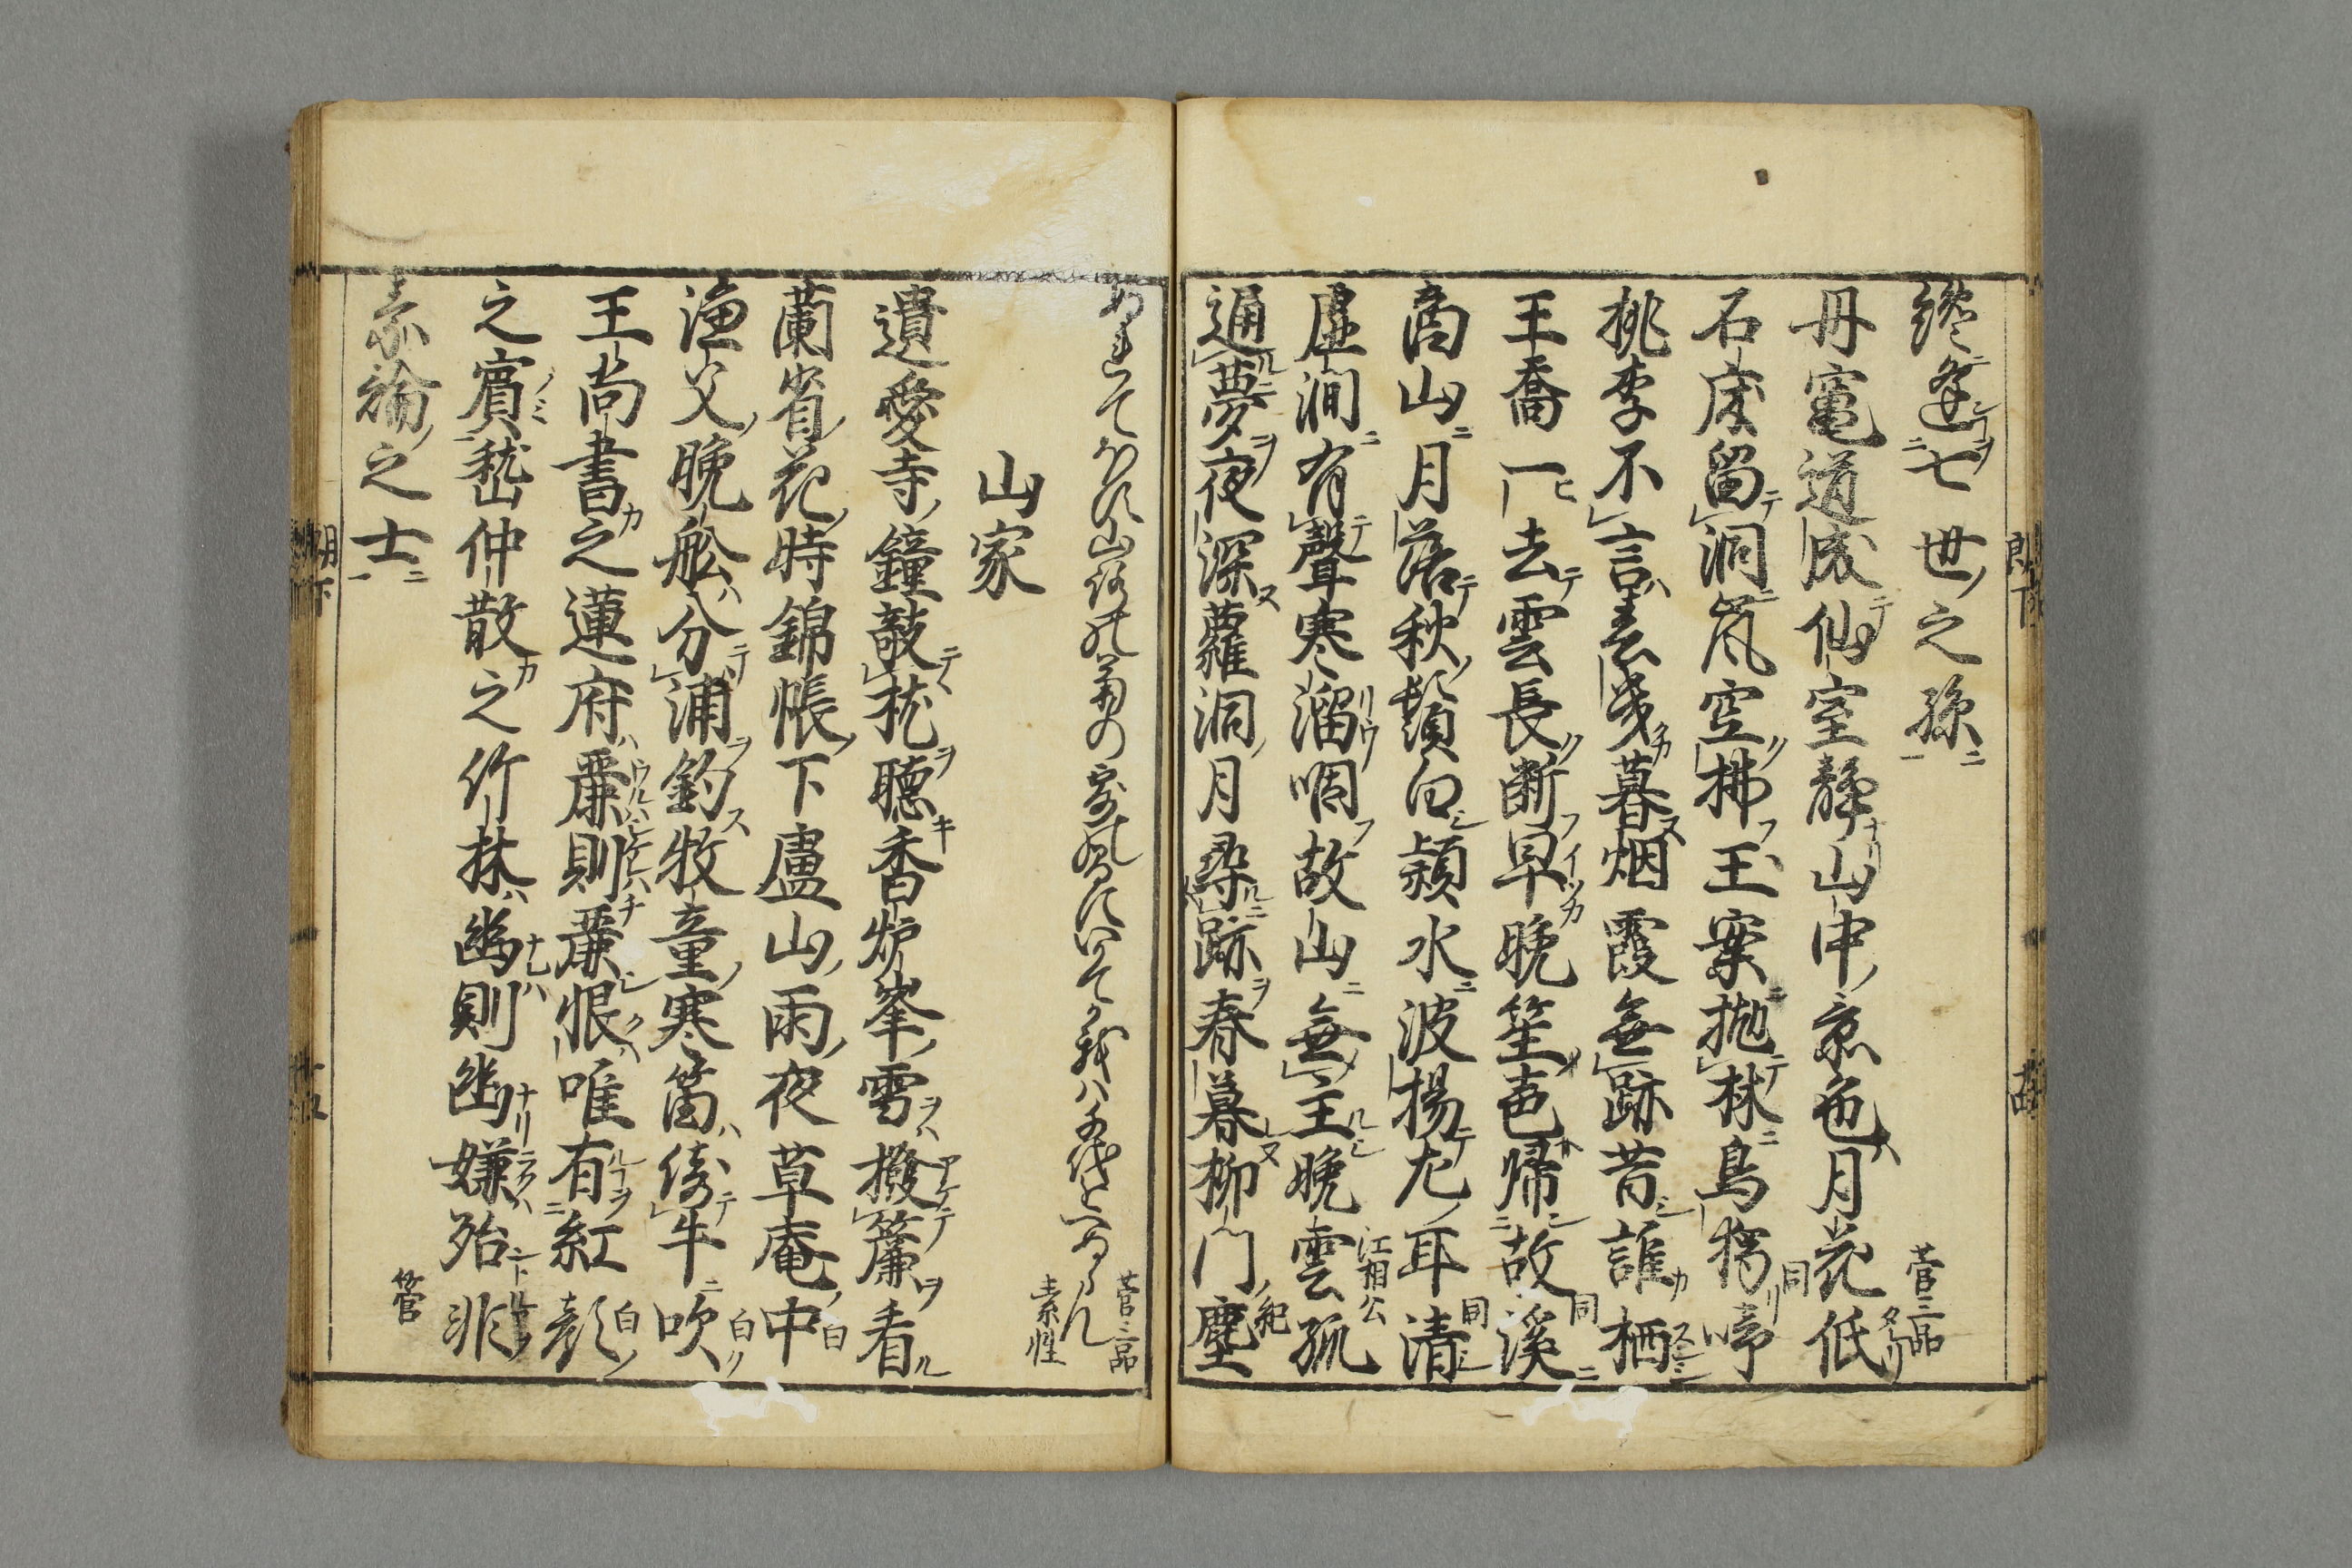 纔逢七世之孫
丹竃道成仙室静山中景色月花低 菅三品
石床留洞嵐空拂玉案抛林鳥獨啼 同
桃李不言春幾暮烟霞無跡昔誰栖
王喬一去雲長断早晩笙聲歸故溪 同
商山月落秋鬚白潁水波揚左耳清 同
虚澗有聲寒溜咽故山無主晩雲孤 江相公
通夢夜深蘿洞月尋跡春暮柳門塵 紀
菅三品
ぬれてほす山路の菊の露のまにいつかちとせを我はへにけん 素性
山家
遺愛寺鐘敲枕聽香炉峯雪撥簾看
蘭省花時錦帳下盧山雨夜草庵中 白
漁父晩舩分浦釣牧童寒笛倚牛吹 白
王尚書之蓮府麗則麗恨唯有紅顔 白
之賓嵆仲散之竹林幽則幽嫌殆非
素論之士 菅